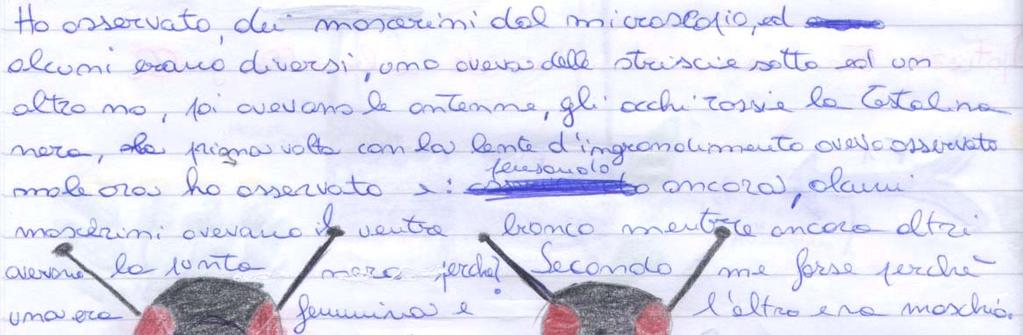 Ho osservato, dei moscerini dal microscopio, ed
alcuni erano diversi, uno aveva delle striscie sotto ed un
altro no, poi avevano le antenne, gli occhi rossi e la testolina
nera, la prima volta con la lente d'ingrandimento avevo osservato
male ora ho osservato pensandolo ancora, alcuni
moscerini avevano il ventre bianco mentre ancora altri
avevano la punta nera perchè? Secondo me forse perchè
una era femmina e l'altro era maschio.